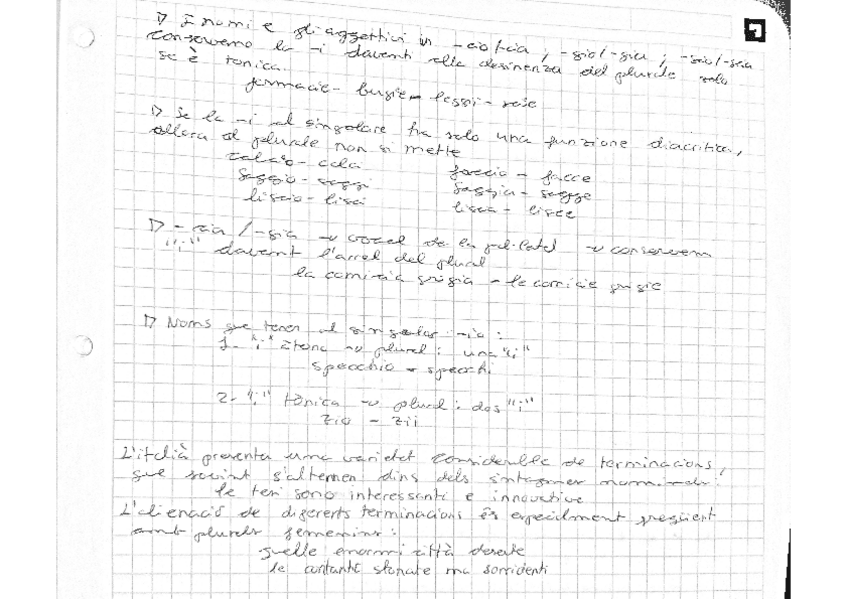 I nomi e gli aggettivi in -cio/-cia ; -gio/-gia ; -scio/-scia
conservano la -i davanti alla desinenza del plurale solo
se è tonica.
farmacie - bugie - leggi - scie
Se la -i al singolare ha solo una funzione diacritica,
allora al plurale non si mette
calcio - calci faccio - facce
saggio - saggi saggia - sagge
liscio - lisci liscia - lisce
-cia / -gia → vocal de la síl·laba → conservem
"i" davant l'arrel del plural
la camicia grigia - le camicie grigie
Noms que tenen al singular -io :
1- "i" àtona → plural : una "i"
specchio - specchi
2- "i" tònica → plural : dos "i"
zio - zii
L'italià presenta una varietat considerable de terminacions,
que sovint s'alternen dins dels sintagmes nominals:
le tesi sono interessanti e innovative
L'alienació de diferents terminacions és especialment freqüent
amb plurals femenins:
quelle enormi città deserte
le cantanti stonate ma sorridenti